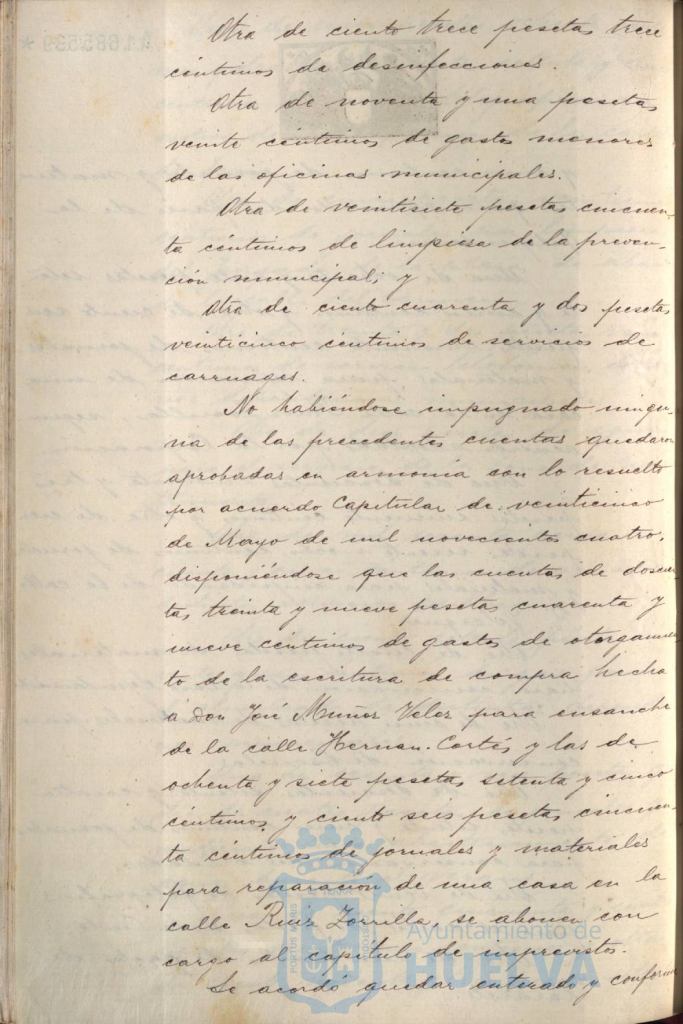 Otra de ciento trece pesetas trece
céntimos de desinfecciones.
Otra de noventa y una pesetas
veinte céntimos de gastos menores
de las oficinas municipales.
Otra de veintisiete pesetas cincuen-
ta céntimos de limpieza de la preven-
ción municipal; y
Otra de ciento cuarenta y dos pesetas
veinticinco céntimos de servicios de
carruages.
No habiéndose impugnado ningu-
na de las precedentes cuentas quedaron
aprobadas en armonía con lo resuelto
por acuerdo Capitular de veinticinco
de Mayo de mil novecientos cuatro,
disponiéndose que las cuentas de doscien-
tas treinta y nueve pesetas cuarenta y
nueve céntimos de gastos de otorgamien
to de la escritura de compra hecha
a Don José Muñoz Velez para ensanche
de la calle Hernan-Cortés y las de
ochenta y siete pesetas setenta y cinco
céntimos y ciento seis pesetas cincuen-
ta céntimos de jornales y materiales
para reparación de una casa en la
calle Ruiz Zorrilla, se abonen con
cargo al capitulo de imprevistos.
Se acordó quedar enterado y conforme
Ayuntamiento de
HUELVA